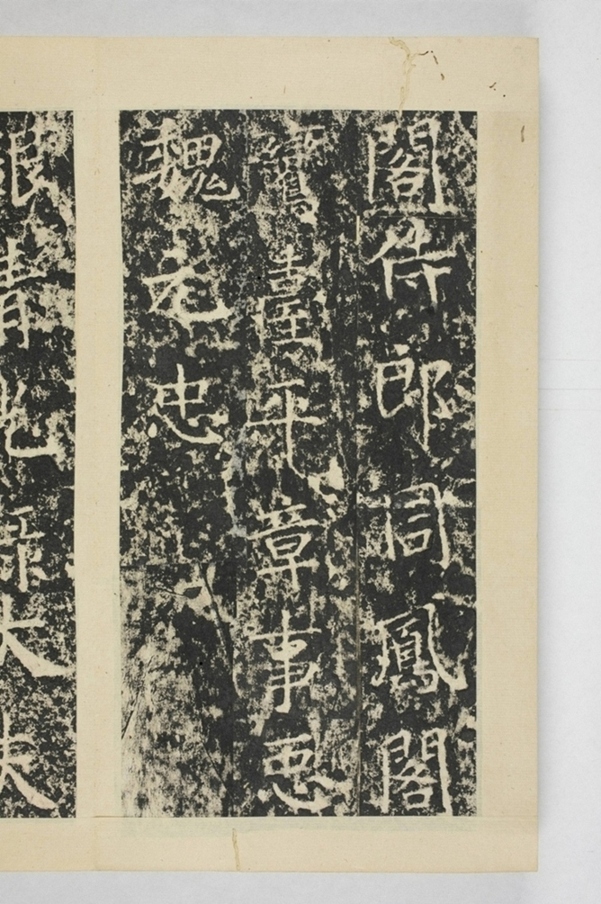 閣侍郎同鳳閣
鸞臺平章事𢘑
魏元忠
銀青光祿大夫